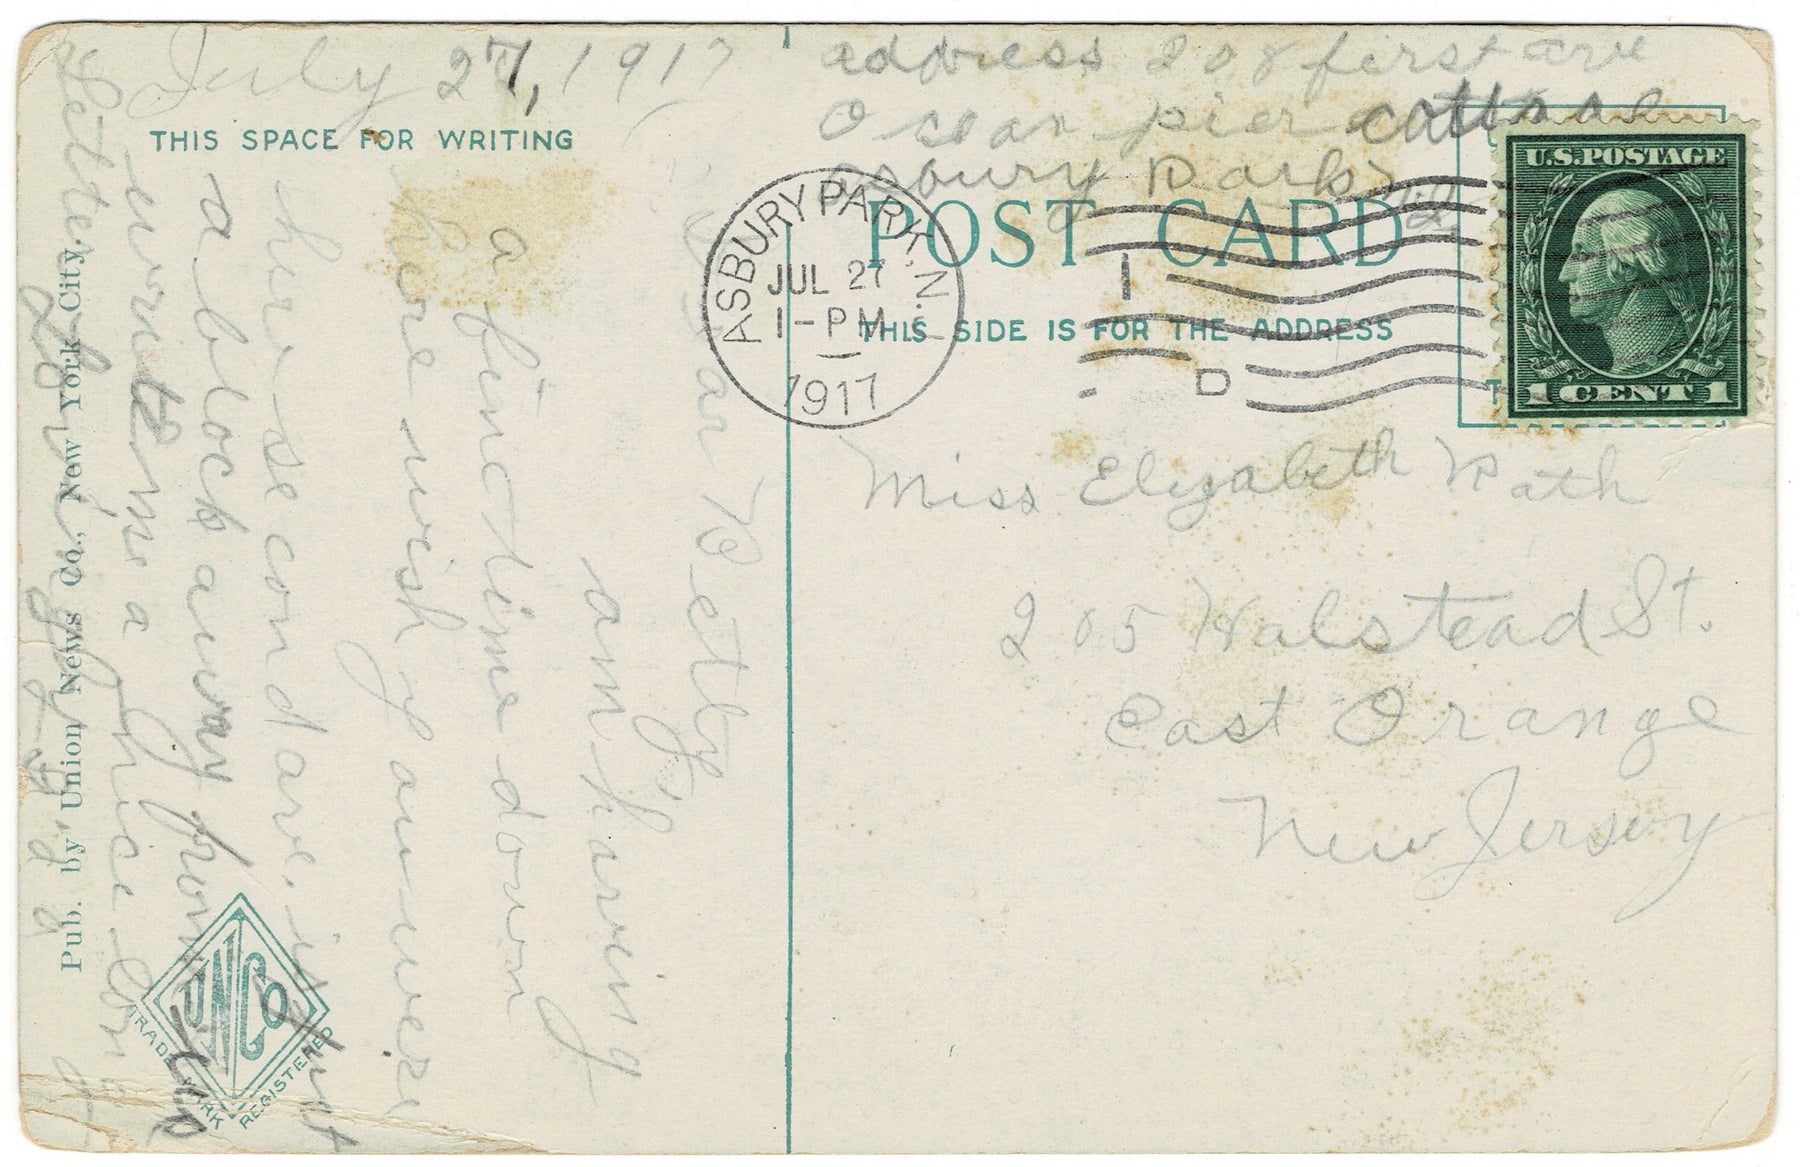 July 27, 1917
THIS SPACE FOR WRITING
Dear Betty
am having
a fine time down
here wish you were
here second ave. is just
a block away from here
write me a nice long
letter
Pub. by Union News Co., New York City.
UNCO
TRADE MARK REGISTERED
address 208 first ave
Ocean pier cottage
asbury Park N.J.
POST CARD
THIS SIDE IS FOR THE ADDRESS
ASBURY PARK, N.J.
JUL 27
1-PM
1917
1
D
U.S. POSTAGE
1 CENT 1
Miss Elizabeth Rath
205 Halstead St.
East Orange
New Jersey